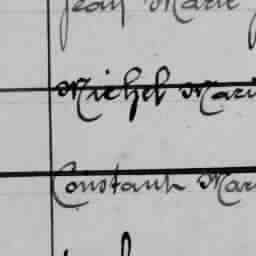 Jean Marie
Michel Mari
Constant Mar